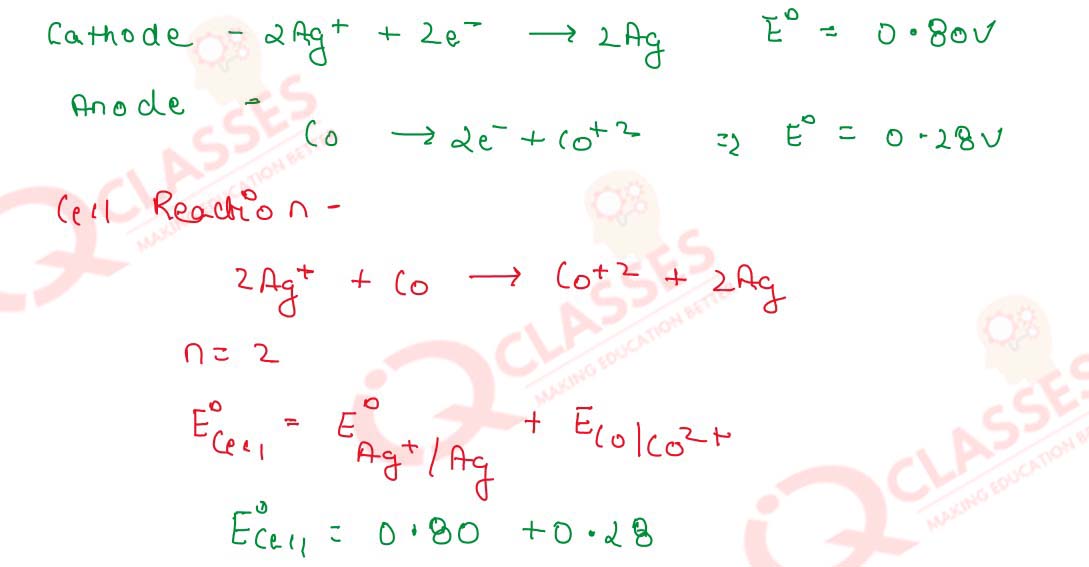 Cathode - 2Ag⁺ + 2e⁻ ⟶ 2Ag E⁰ = 0.80V
Anode -
Co ⟶ 2e⁻ + Co⁺² ⇒ E⁰ = 0.28V
Cell Reaction -
2Ag⁺ + Co ⟶ Co⁺² + 2Ag
n = 2
E⁰Cell = E⁰Ag⁺/Ag + ECo|Co²⁺
E⁰Cell = 0.80 + 0.28
IQ CLASSES
MAKING EDUCATION BETTER
IQ CLASSES
MAKING EDUCATION BETTER
IQ CLASSES
MAKING EDUCATION BE